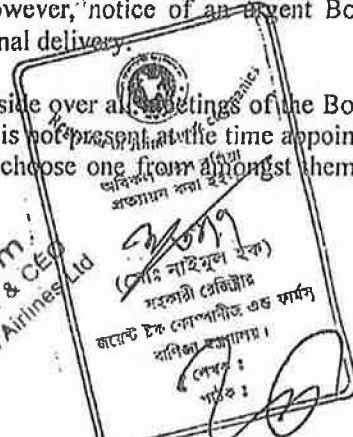 owever, notice of an urgent Bo
nal delivery.
side over all meetings of the Bo
is not present at the time appoin
choose one from amongst them
অবিকল নকল বলিয়া
প্রত্যায়ন করা হইল
(মোঃ নাইমুল হক)
সহকারী রেজিষ্ট্রার
জয়েন্ট ষ্টক কোম্পানীজ এন্ড ফার্মস্
বাণিজ্য মন্ত্রণালয়।
লেখক :
পাঠক :
& CEO
Airlines Ltd